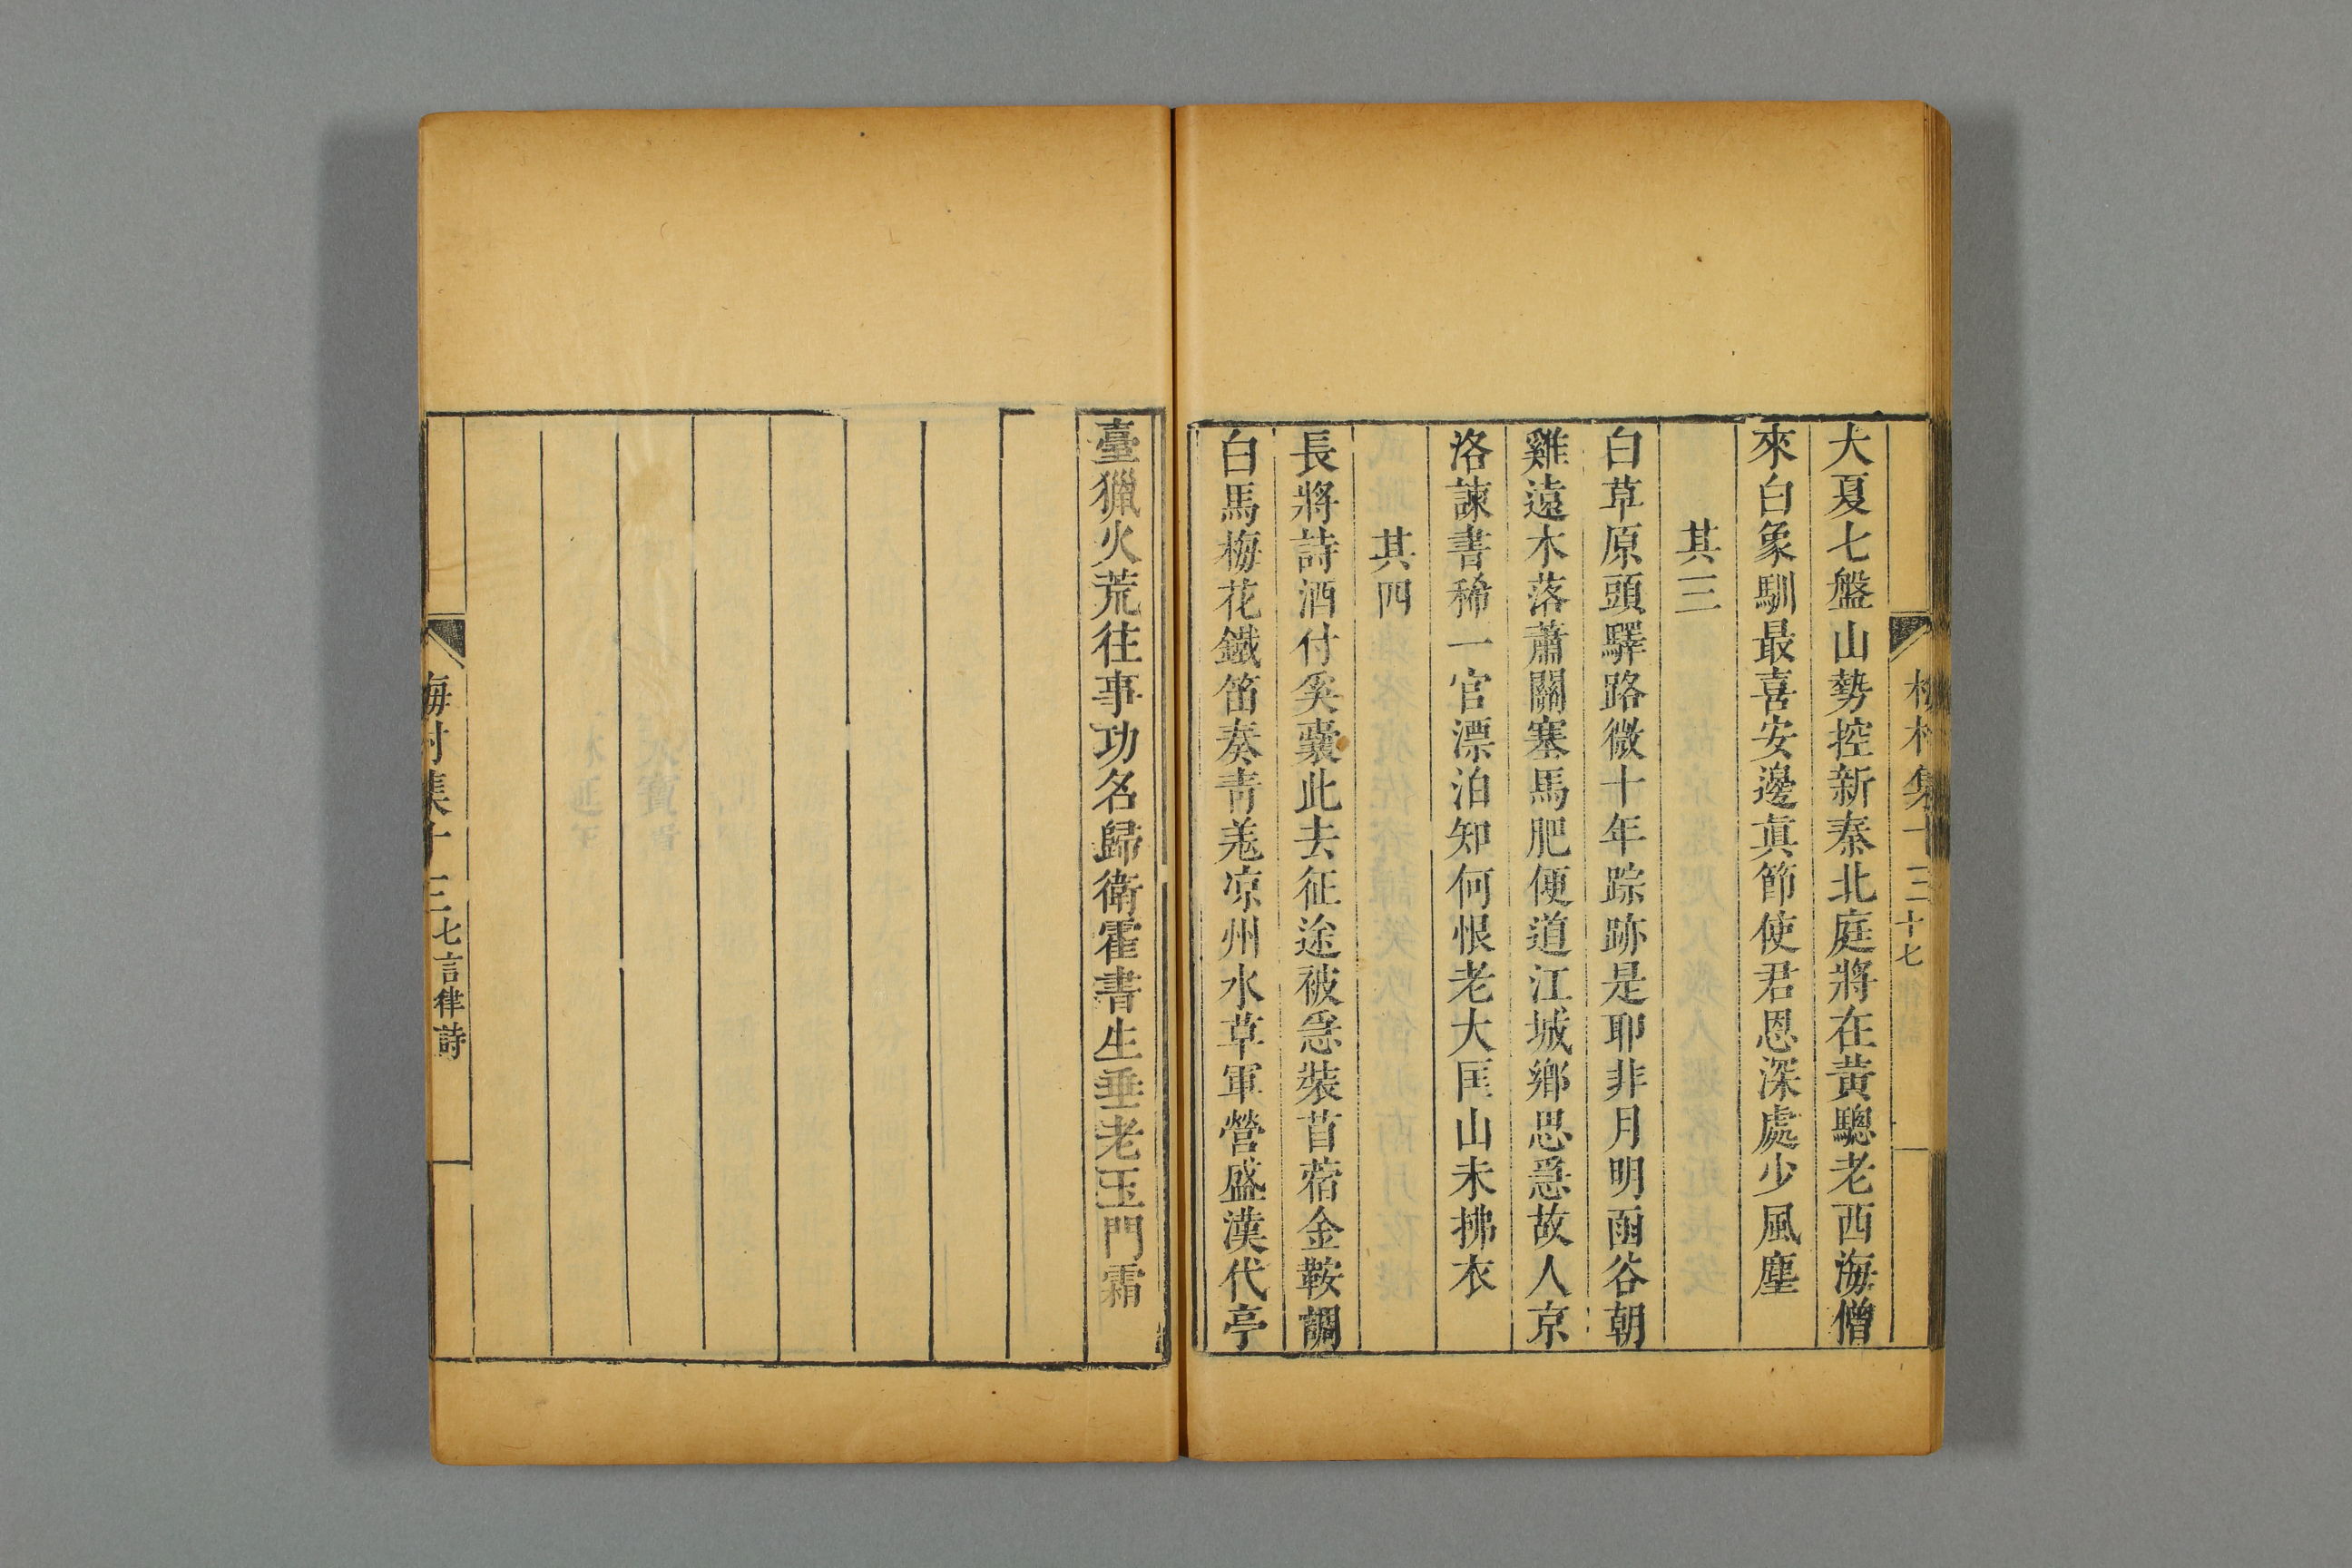 梅村集十三 十七
大夏七盤山勢控新秦北庭將在黃驄老西海僧
來白象馴最喜安邊眞節使君恩深處少風塵
其三
白草原頭驛路微十年踪跡是耶非月明函谷朝
雞遠木落蕭關塞馬肥便道江城鄉思急故人京
洛諫書稀一官漂泊知何恨老大匡山未拂衣
其四
長將詩酒付奚囊此去征途被急裝苜蓿金鞍調
白馬梅花鐵笛奏靑羗凉州水草軍營盛漢代亭
臺獵火荒往事功名歸衛霍書生垂老玉門霜
梅村集十三 七言律詩